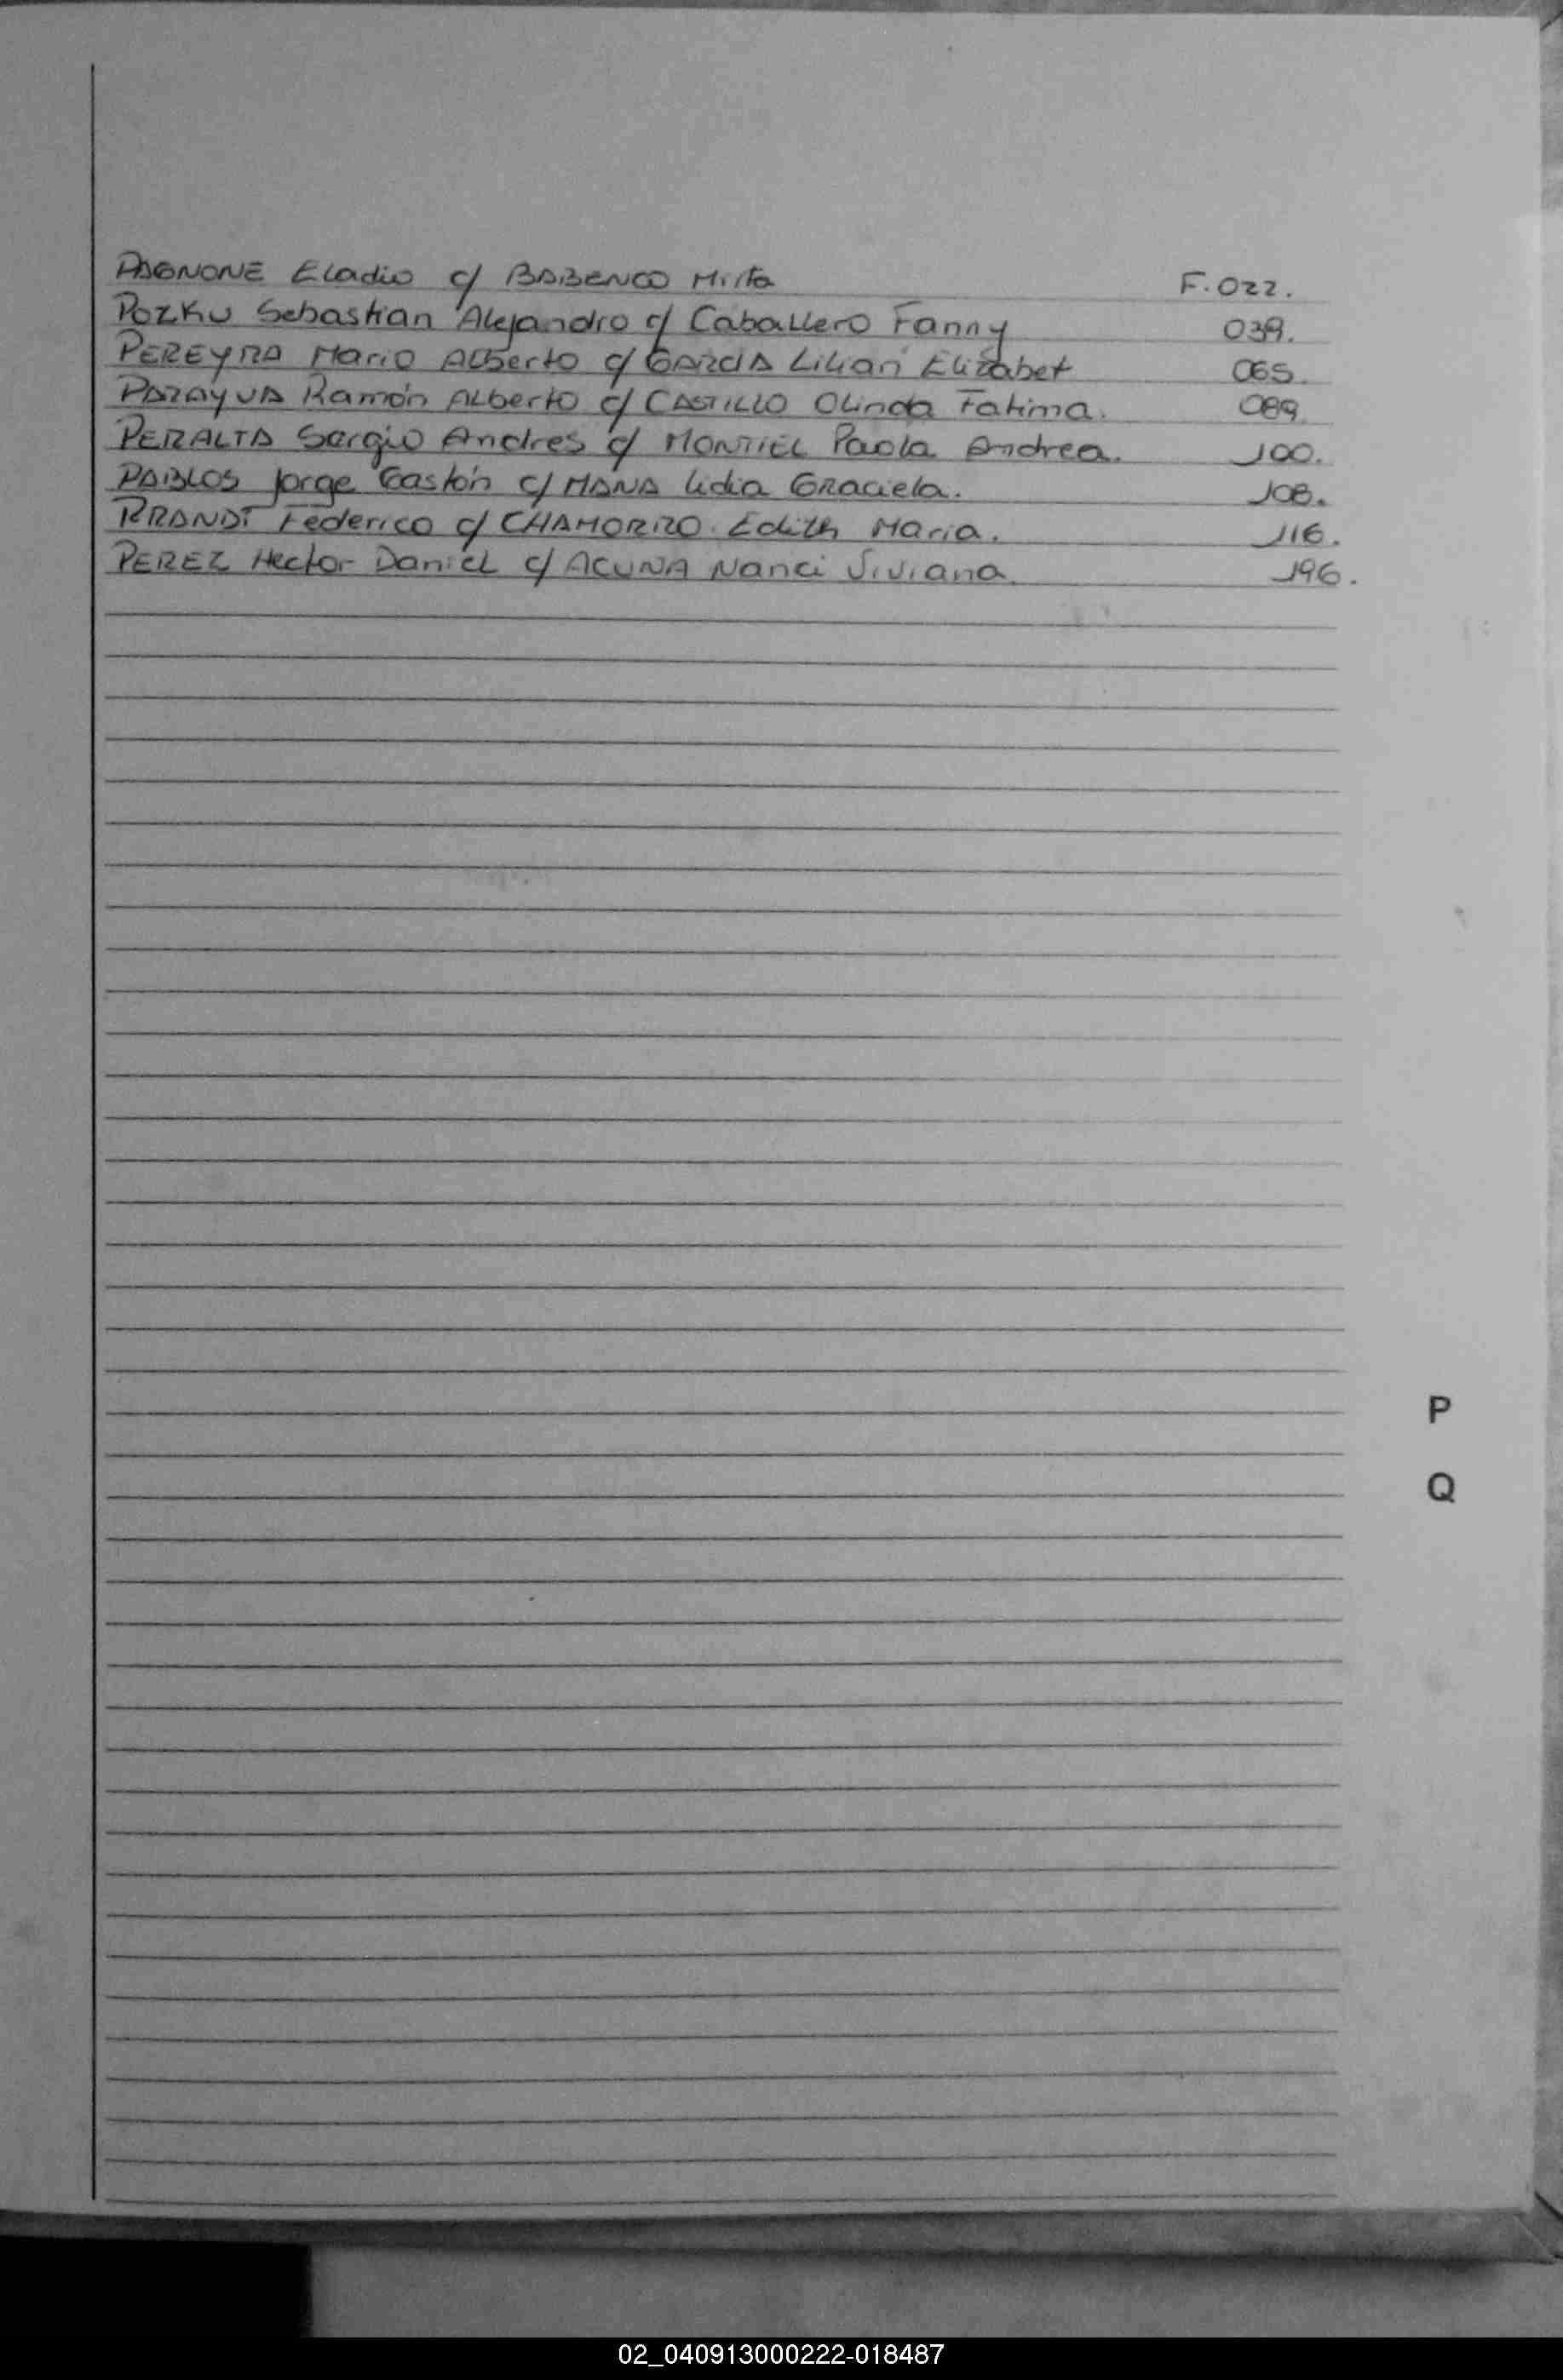 PAGNONE Eladio c/ BABENCO Mirta F. 022.
POZKU Sebastian Alejandro c/ Caballero Fanny 039.
PEREYRA Mario Alberto c/ GARCIA Lilian Elizabet 065.
PARAYUA Ramón Alberto c/ CASTILLO Olinda Fatima. 089.
PERALTA Sergio Andres c/ MONTIEL Paola Andrea. 100.
PABLOS Jorge Gastón c/ MANA Lidia Graciela. 108.
PRANDT Federico c/ CHAMORRO Edith Maria. 116.
PEREZ Hector Daniel c/ ACUNA Nanci Viviana. 196.
P
Q
02_040913000222-018487